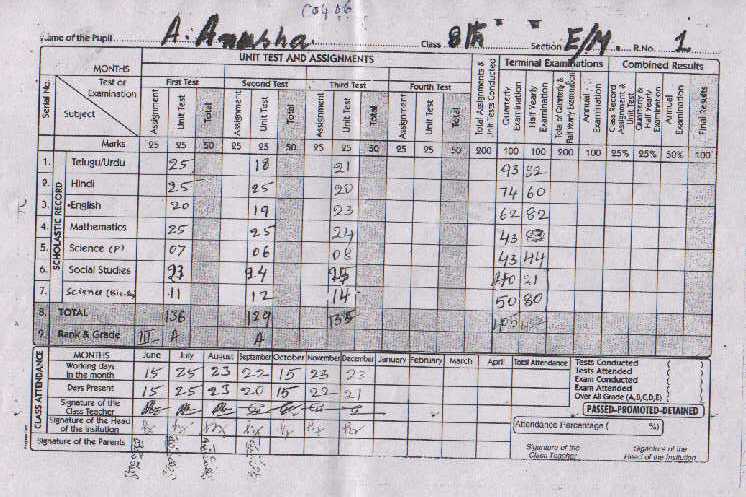 Name of the Pupil A. Anusha Class 8th Section E/M R.No. 1
MONTHS UNIT TEST AND ASSIGNMENTS Total Assignments & the Tests conducted Terminal Examinations Combined Results
Serial No. Test or Examination First Test Second Test Third Test Fourth Test
Subject Assignment Unit Test Total Assignment Unit Test Total Assignment Unit Test Total Assignment Unit Test Total Quarterly Examination Half Yearly Examination Total of Quarterly & Half Yearly Examination Annual Examination Class Record Assignment & Unit Test Quarterly & Half Yearly Examination Annual Examination Final Results
Marks 25 25 50 25 25 50 25 25 50 25 25 50 200 100 100 200 100 25% 25% 50% 100
SCHOLASTIC RECORD
1. Telugu/Urdu 25 18 21 93
2. Hindi 25 25 20 74 60
3. English 20 19 23 62 82
4. Mathematics 25 25 24 43
5. Science (P) 07 06 08 43 44
6. Social Studies 23 24 25 21
7. Science (Bio.S) 11 12 14 50 80
8. TOTAL 136 129 135
9. Rank & Grade III A A
CLASS ATTENDANCE
MONTHS June July August September October November December January February March April Total Attendance
Working days in the month 15 25 23 22 15 23 23
Days Present 15 25 23 20 15 22 21
Signature of the Class Teacher
Signature of the Head of the Insitution
Signature of the Parents
Tests Conducted ( )
Tests Attended ( )
Exam Conducted ( )
Exam Attended ( )
Over All Grade (A,B,C,D,E) ( )
PASSED-PROMOTED-DETAINED
(Attendance Percentage ( %)
Signature of the Class Teacher
Signature of the Head of the Institution